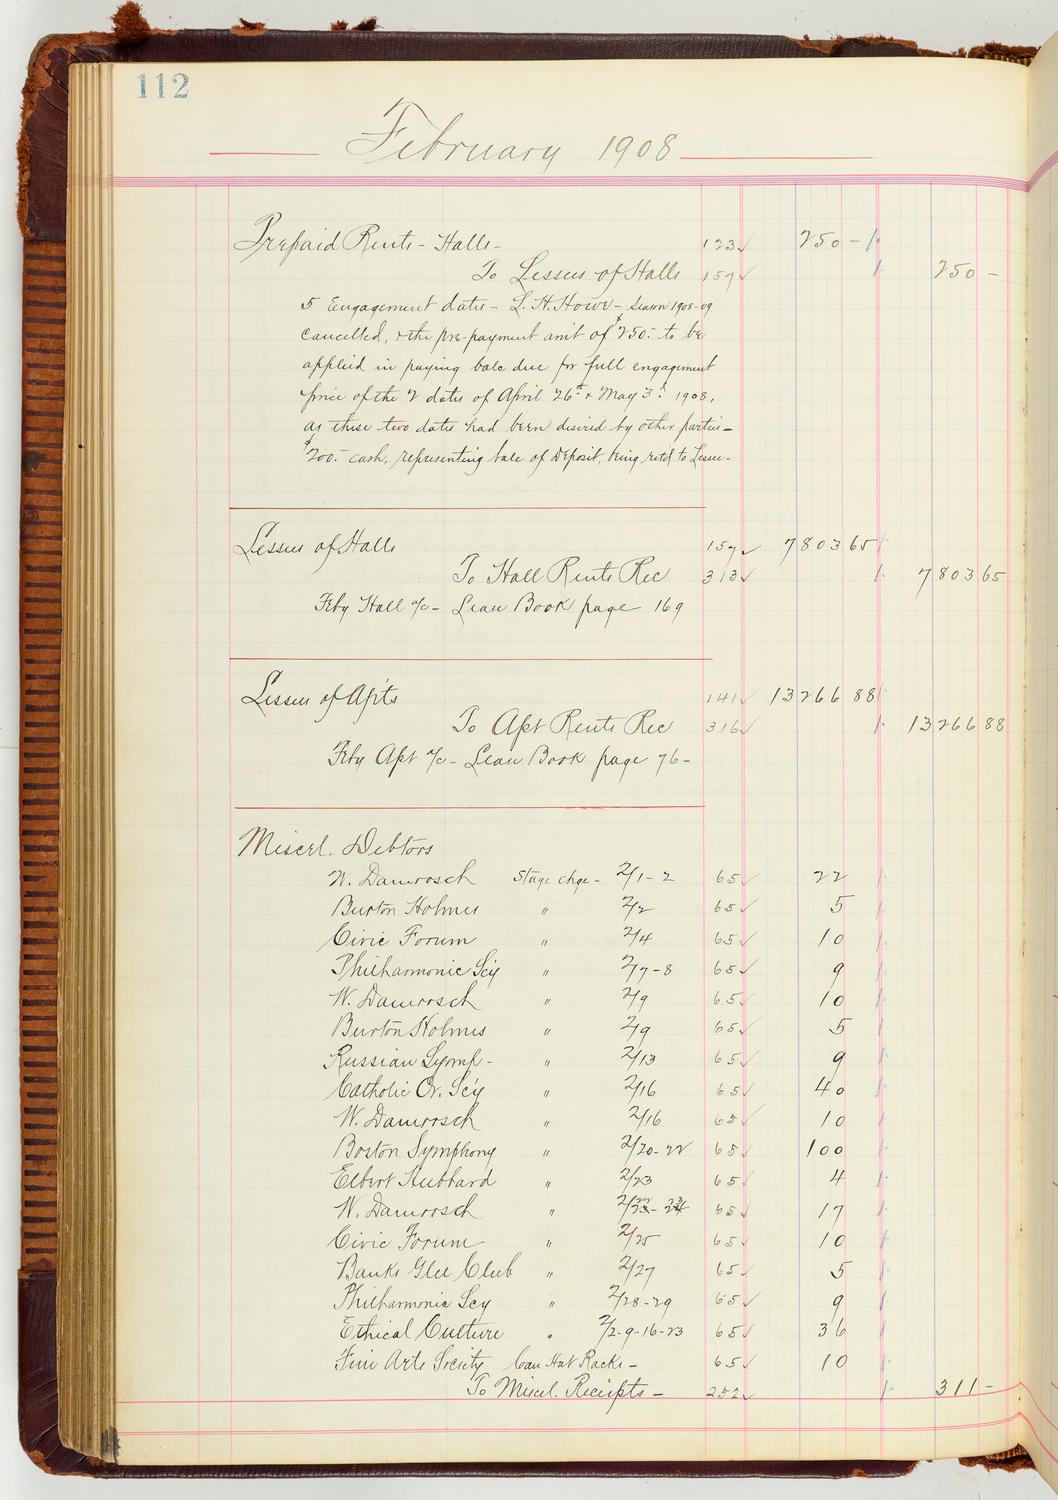 112
February 1908
Prepaid Rents - Halls - 123 250 -
To Lessees of Halls 157 250 -
5 Engagement dates - L. H. Howe - Season 1908-09
cancelled, & the pre-payment amt of $250.- to be
applied in paying balc due for full engagement
price of the 2 dates of April 26th & May 3d 1908,
as these two dates had been desired by other parties -
$200.- cash, representing balc of Deposit, being retd to Lessee -
Lessees of Halls 157 7803 65
To Hall Rents Rec 313 7803 65
Feby Hall a/c - Lease Book page 169
Lessees of Apts 141 13266 88
To Apt Rents Rec 316 13266 88
Feby Apt a/c - Lease Book page 76 -
Miscel. Debtors
W. Damrosch Stage chge - 2/1-2 65 22
Burton Holmes " 2/2 65 5
Civic Forum " 2/4 65 10
Philharmonic Sc'y " 2/7-8 65 9
W. Damrosch " 2/9 65 10
Burton Holmes " 2/9 65 5
Russian Symp - " 2/13 65 9
Catholic Or. Sc'y " 2/16 65 40
W. Damrosch " 2/16 65 10
Boston Symphony " 2/20-22 65 100
Elbert Hubbard " 2/23 65 4
W. Damrosch " 65 17
Civic Forum " 2/25 65 10
Banks Glee Club " 2/27 65 5
Philharmonic Scy " 2/28-29 65 9
Ethical Culture " 2/2-9-16-23 65 36
Fine Arts Society loan Hat Racks - 65 10
To Miscel. Receipts - 252 311 -